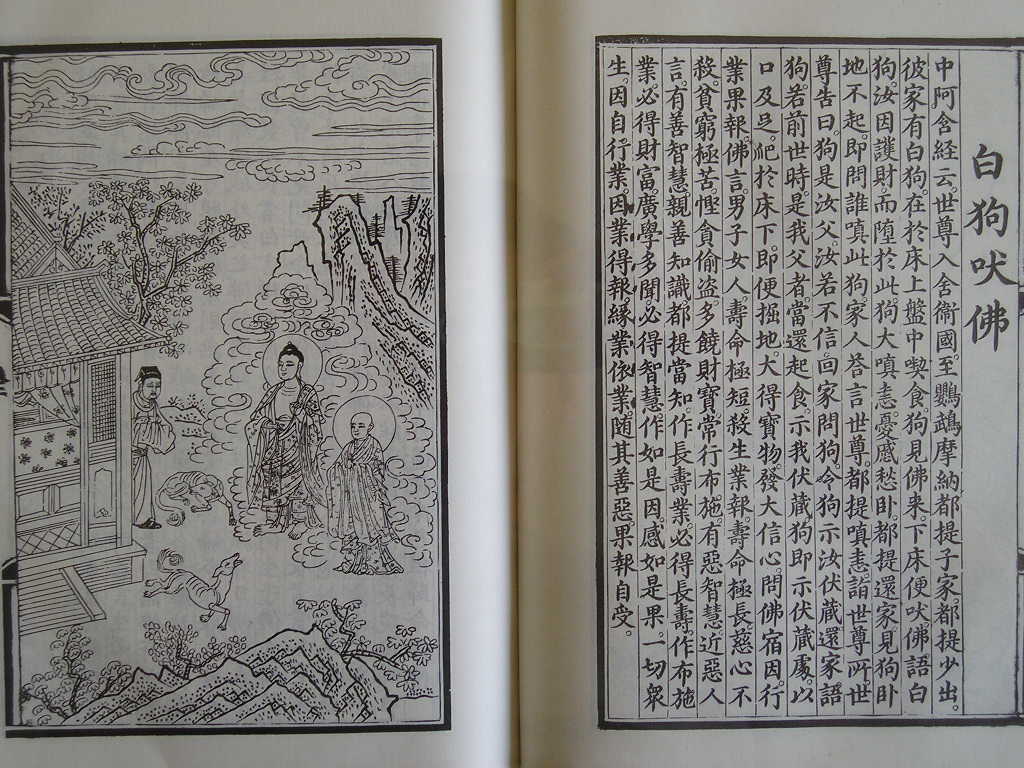 白狗吠佛
中阿含経云。世尊入舍衞國。至鸚鵡摩納都提子家都提少出。
彼家有白狗。在於床上盤中喫食。狗見佛来下床便吠。佛語白
狗汝因護財。而堕於此狗大嗔恚。憂慼愁卧。都提還家見狗卧
地不起。即問誰嗔此狗家人荅言世尊。都提嗔恚詣世尊所世
尊告曰。狗是汝父。汝若不信。回家問狗。令狗示汝伏藏還家語
狗。若前世時。是我父者。當還起食。示我伏藏狗即示伏藏處。以
口及足。䶕於床下。即便掘地。大得寳物。發大信心。問佛宿因行
業果報。佛言。男子女人。壽命極短。殺生業報。壽命極長慈心不
殺。貧窮極苦。慳貪偷盗。多饒財寳。常行布施。有惡智慧。近惡人
言。有善智慧親善知識都提當知。作長壽業。必得長壽。作布施
業必得財富。廣學多聞。必得智慧。作如是因。感如是果。一切衆
生。因自行業。因業得報。緣業依業随其善惡。果報自受。